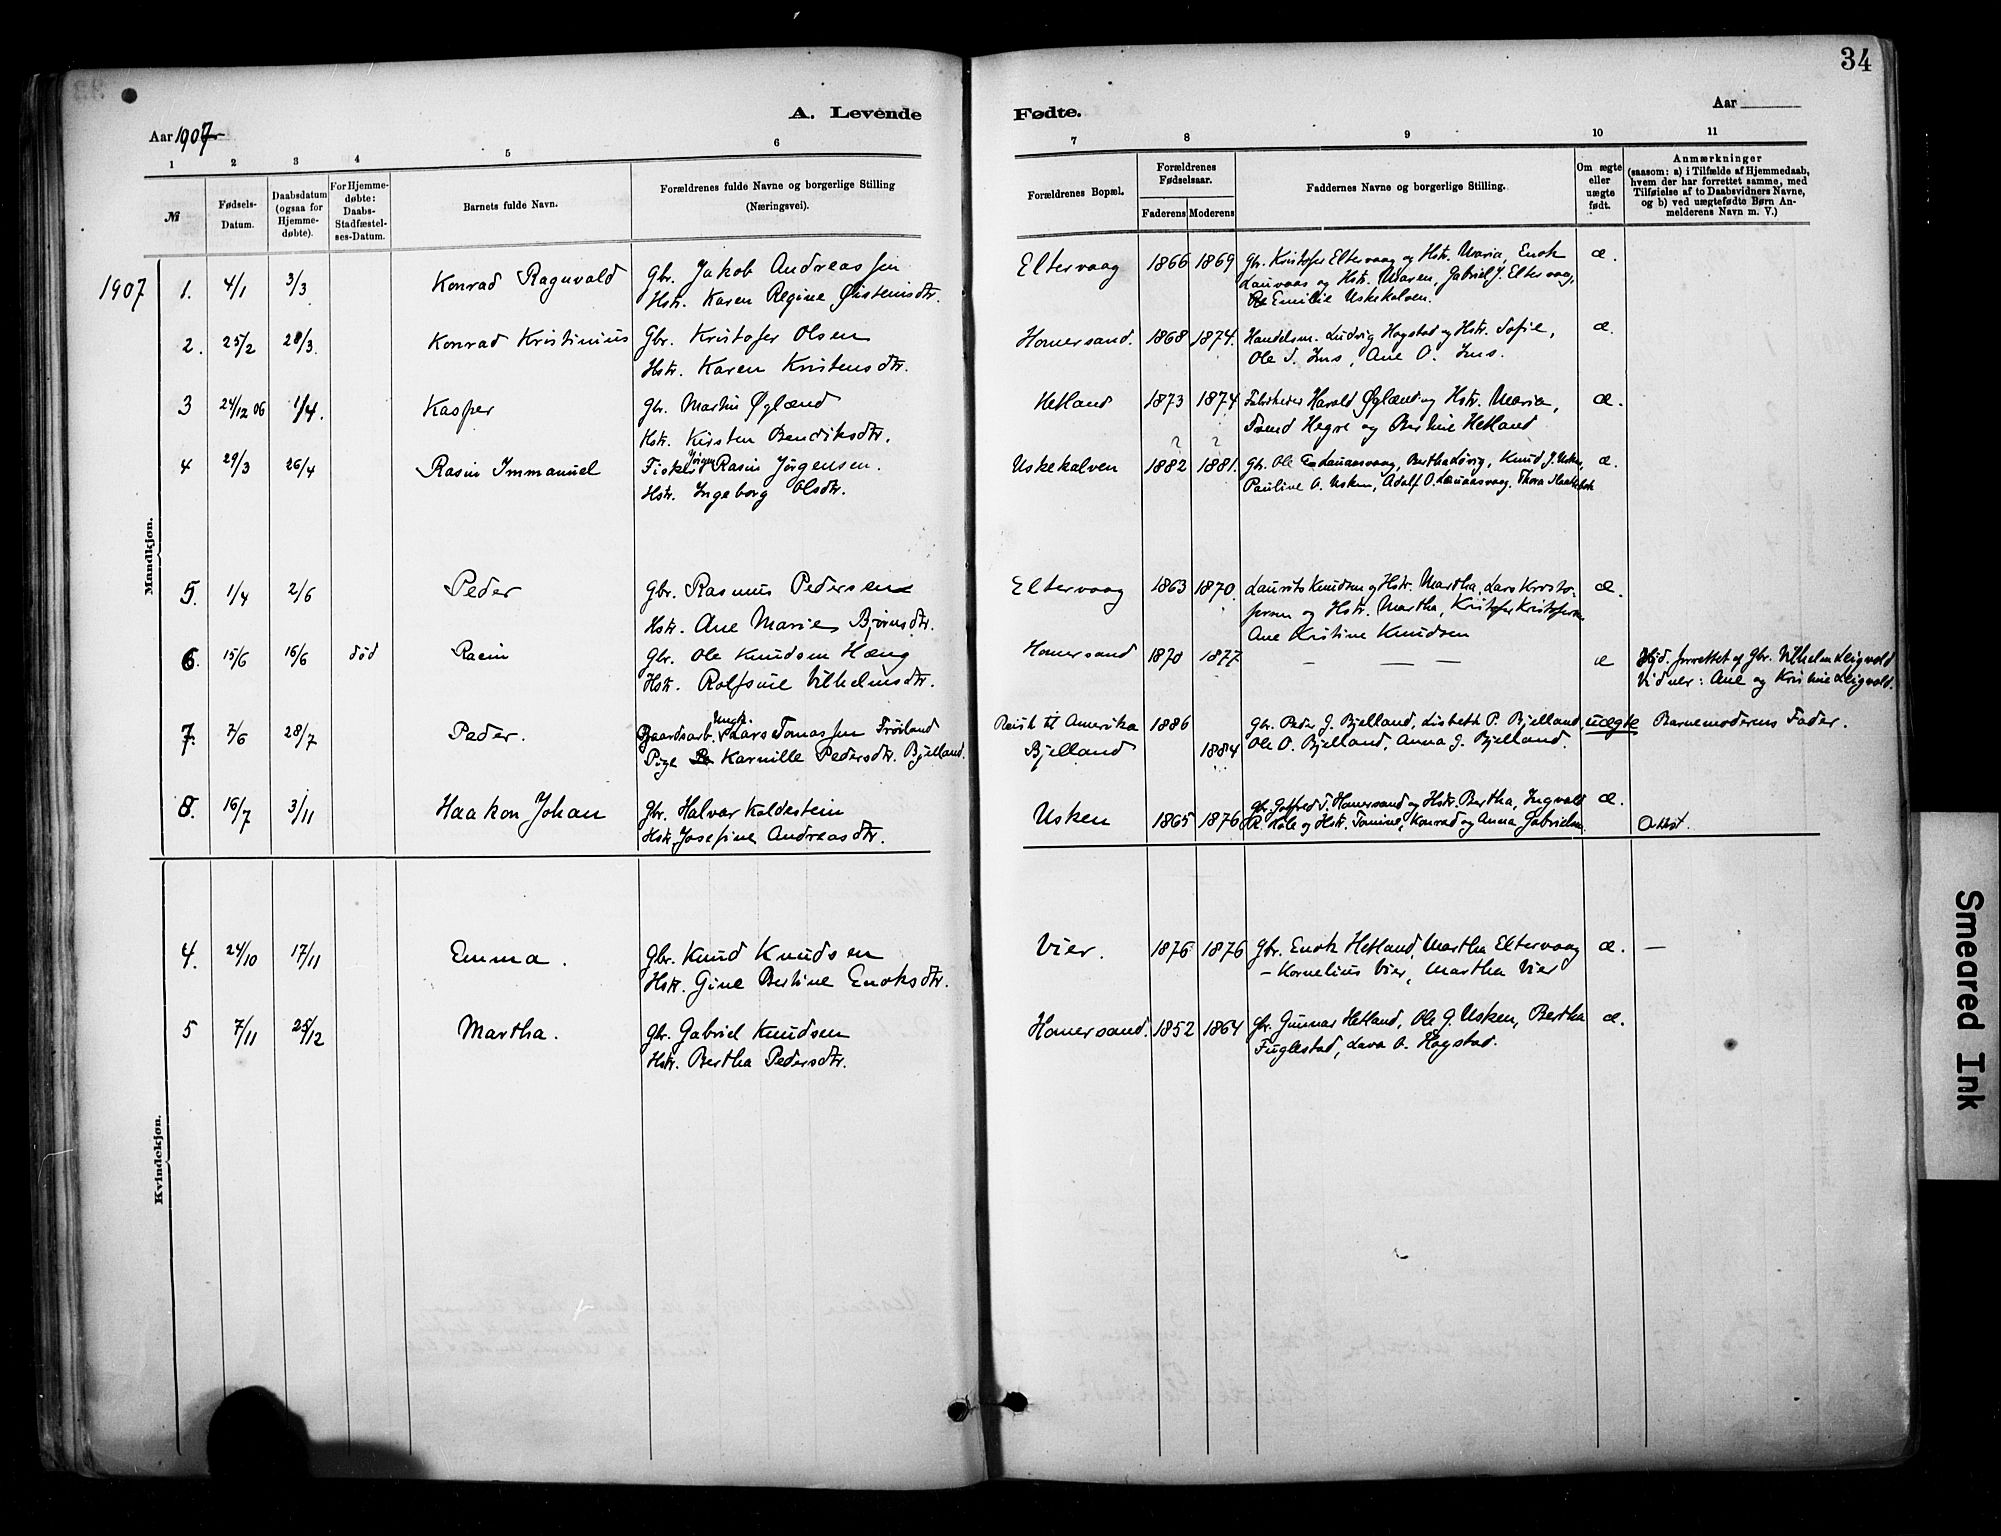 34
A. Levende Fødte.
Aar 1907
Aar
1 2 3 4 5 6 7 8 9 10 11
№
Fødsels-Datum.
Daabsdatum (ogsaa for Hjemme-døbte).
For Hjemme-døbte: Daabs-Stadfæstel-ses-Datum.
Barnets fulde Navn.
Forældrenes fulde Navne og borgerlige Stilling (Næringsvei).
Forældrenes Bopæl.
Forældrenes Fødselsaar.
Faderens Moderens
Faddernes Navne og borgerlige Stilling.
Om ægte eller uægte født.
Anmærkninger
(saasom: a) i Tilfælde af Hjemmedaab,
hvem der har forrettet samme, med
Tilføielse af to Daabsvidners Navne,
og b) ved uægtefødte Børn An-
melderens Navn m. V.)
Mandkjøn.
1907 1. 4/1 3/3 Konrad Ragnvald Gbr. Jakob Andreassen Eltervaag 1866 1869 Gbr. Kristofer Eltervaag og Hstr. Maria, Enok æ.
Hstr. Karen Regine Øisteinsdtr. Lauvaas og Hstr. Maren, Gabriel J. Eltervaag,
Emilie Uskekalven.
2. 25/2 28/3. Konrad Kristinius Gbr. Kristofer Olsen Homersand. 1868 1874. Handelsm. Ludvig Hogstad og Hstr. Sofie, æ.
Hstr. Karen Kristensdtr. Ole S. Ims, Ane O. Ims.
3 24/12 06 1/4. Kasper Gbr. Martin Øglænd Hetland 1873 1874 Harald Øglænd og Hstr. Maria, æ.
Hstr. Kirsten Bendiksdtr. Hegre og Bertine Hetland
? ?
4 29/3 26/4 Rasin Immanuel Fisker Jørgen Rasin Jørgensen. Uskekalven 1882 1881. Gbr. Ole Lauaasvaag, Bertha Løvig, Knud J. Usken, æ.
Hstr. Ingeborg Olsdtr. Pauline A. Usken, Adolf O. Lauaasvaag. Thora
5. 1/4 2/6 Peder Gbr. Rasmus Pedersen Eltervaag 1863 1870. Laurits Knudsen og Hstr. Martha, Lars Kristo- æ.
Hstr. Ane Marie Bjørnsdtr. fersen og Hstr. Martha, Kristofer Kristofersen
Ane Kristine Knudsen
6. 15/6 16/6 død Rasin Gbr. Ole Knudsen Hæng Homersand 1870 1877. — — — æ Hjd. forrettet af Gbr. Vilhelm Leigvold
Hstr. Rolfsine Vilhelmsdtr. Vidner: Ane og Kristine Leigvold.
7. 7/6 28/7 Peder. Gaardsarb. Ungk. Lars Tomassen Frøiland Reist til Amerika 1886 Gbr. Peder G. Bjelland, Lisbeth P. Bjelland uægte Barnemoderens Fader.
Pige Karnille Pedersdtr. Bjelland. Bjelland 1884 Ole O. Bjelland, Anna G. Bjelland.
8. 16/7 3/11 Haakon Johan Gbr. Halvar Koldestein Usken 1865 1876 Gbr. Gotfred T. Homersand og Hstr. Bertha, Ingvald æ.
Hstr. Josefine Andreasdtr. R. Køle og Hstr. Tomine, Konrad og Anna Gabrielsen. Attst.
Kvindekjøn.
4. 24/10 17/11 Emma. Gbr. Knud Knudsen Vier. 1876 1876 Gbr. Enok Hetland, Martha Eltervaag æ. —
Hstr. Gine Bertine Enoksdtr. — Kornelius Vier, Martha Vier
5 7/11 25/12 Martha. Gbr. Gabriel Knudsen Homersand. 1852 1864 Gbr. Gunnar Hetland, Ole G. Usken, Bertha æ.
Hstr. Bertha Pedersdtr. Fuglestad, Lava O. Hogstad.
Smeared Ink